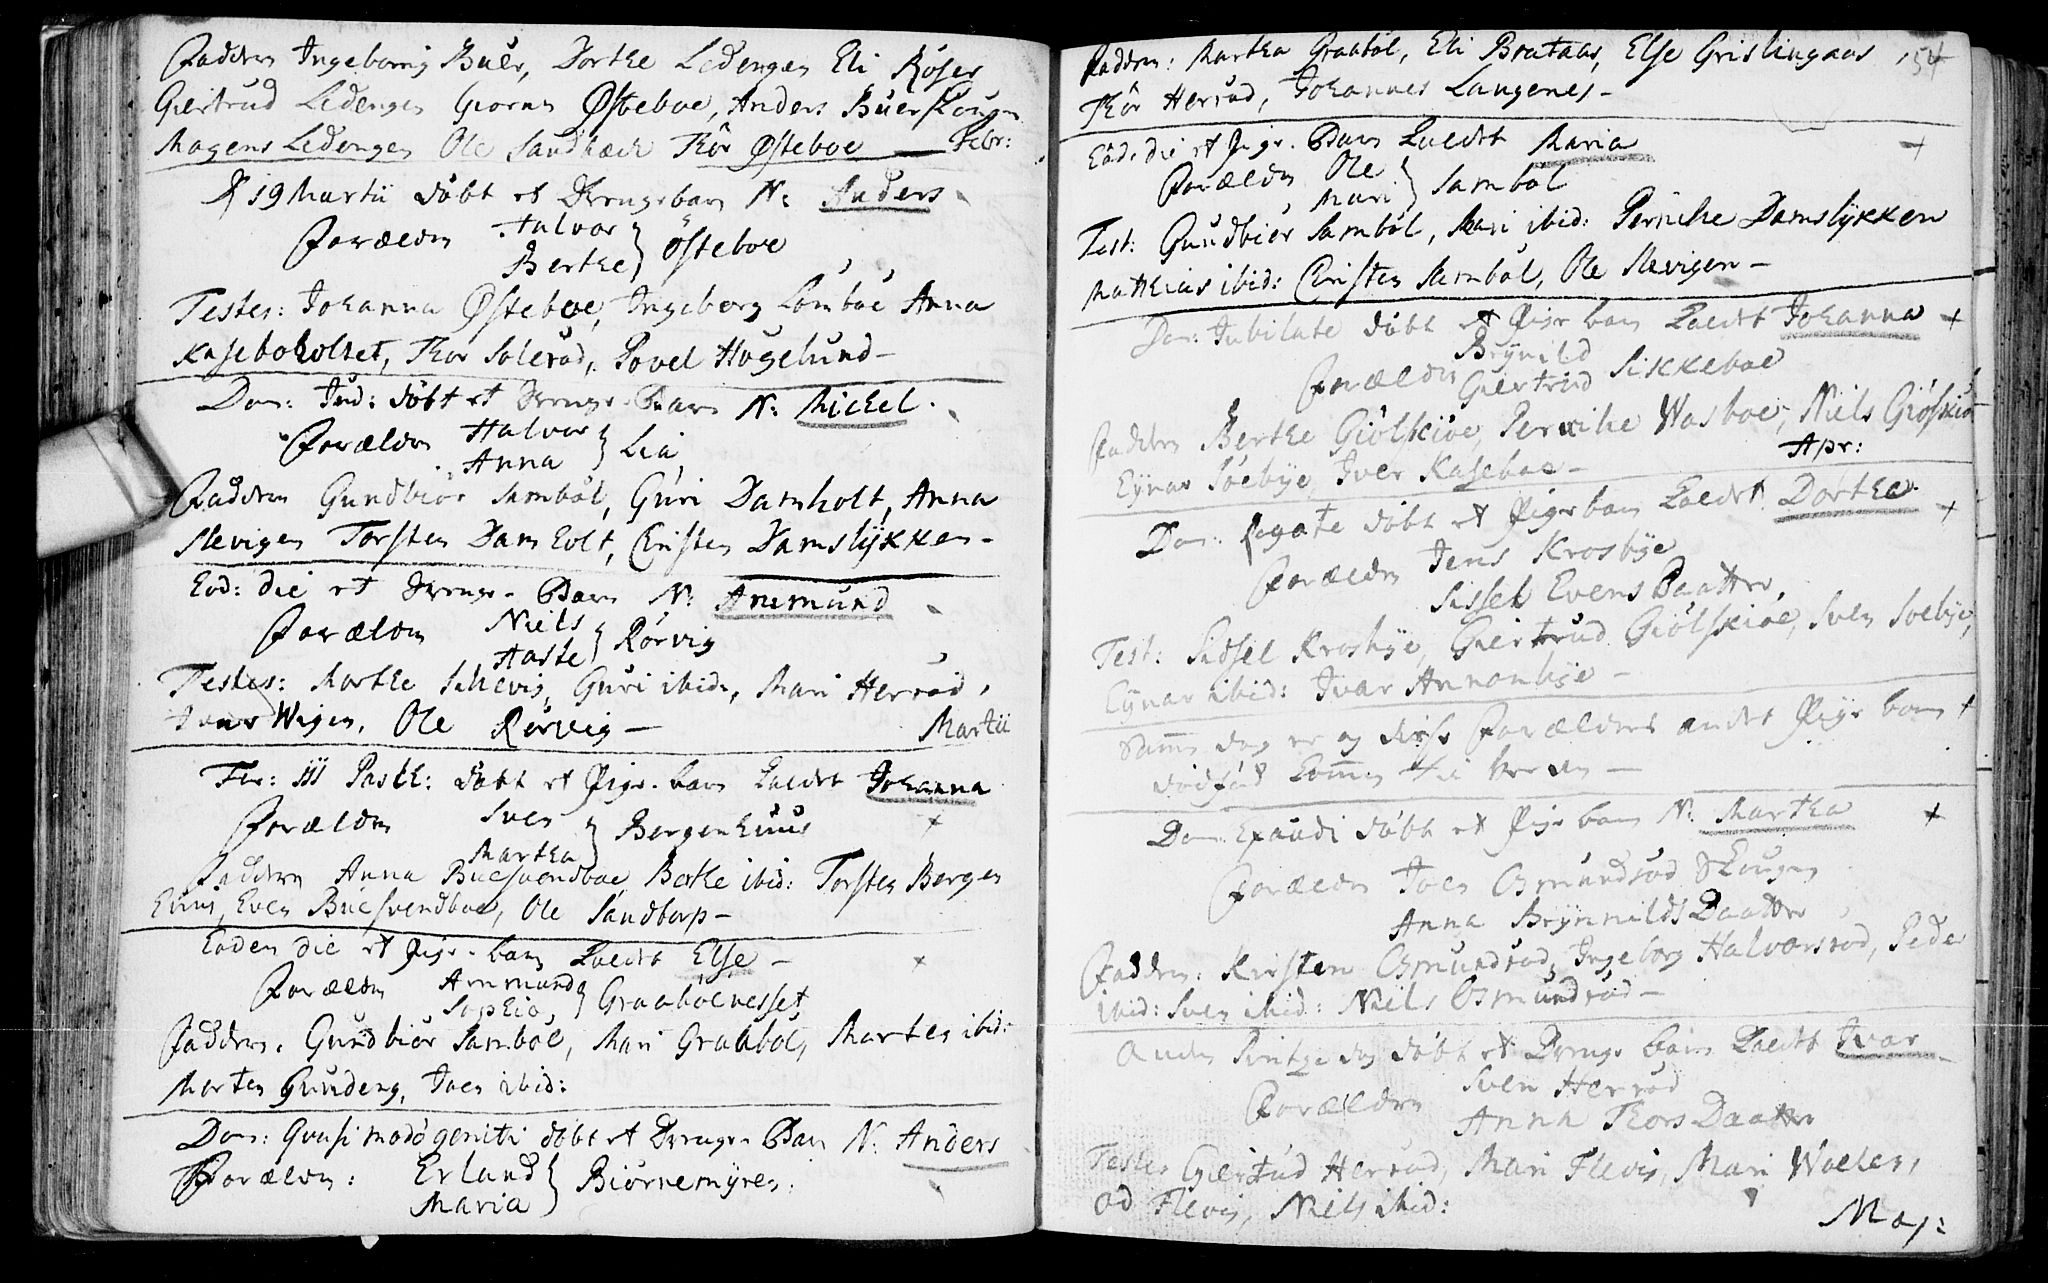 Faddern Ingeborrig Buer, Dorthe Ledengen Eli Røser
Giertrud Ledengen Giorun Østeboe, Anders Buerskougen
Mogens Ledengen Ole Sandbæch Thor Østeboe — Febr:
D 19 Martii döbt et Drengebarn N: Anders
Forældrn Halvor
Berthe } Östeboe
Testes: Johanna Østeboe, Ingeborg Lomboe Anna
Kaseboholtet, Thor Solerød, Povel Hogelund –
Dom: Jud: döbt et Drenge-Barn N: Michel.
Forældrn Halvor
Anna } Lia
Faddern Gundbiör Sambôl, Guri Damholt, Anna
Slevigen Torsten Damholt, Christen Damslÿkken –
Eod: die et Drenge-Barn N: Anemund
Forældrn Niels
Aaste } Rørvig
Testes: Marthe Schevig, Guri ibid:, Mari Herrød,
Wigen, Ole Rørvig — Martii
Fer: iii Pasch: döbt et Pige-barn kaldt Johanna
Forældrn Sven
Martha } Bergenhuus
Faddern Anna Buesvendboe Berthe ibid: Torsten Bergen
huus, Even Buesvendboe, Ole Sandtorp –
Eodem die et Pige-barn kaldt Else –
Forældrn Anemund
Sophia } Graabolnesset
Faddern: Gundbiör Sambôl, Mari Graabôl, Marthe ibid:
Morten Gundeng, Joen ibid:
Dom: Quasimodogeniti döbt et Drenge-Barn N: Anders
Forældrn: Erland
Maria } Biörnemÿren.
Faddern: Martha Graabôl, Eli Brataas, Else Grislingaas 154
Thôr Herrød, Johannes Langenes –
Eôd: die et Pige-Barn kaldt Maria
Forældrn Ole
Mari } Sambôl
Test: Gundbiör Sambôl, Mari ibid: Pernihe Damslÿkken
Mathias ibid: Christen Sambôl, Ole Slevigen –
Dom: Jubilate döbt et Pige barn kaldt Johanna
Forældrn Brÿnild
Giertrud Sikkeboe
Faddern Berthe Giölskiöe, Pernihe Wasboe, Niels Giölskiöe
Eÿnar Soebÿe, Iver Kaseboe – Apr:
Dom: Rogate döbt et Pige barn kaldt Dorthea
Forældrn Jens Krosbÿe
Sissel Evens Daatter
Test: Sidsel Krosbÿe, Giertrud Giölskiöe, Sven Soebÿe,
Eÿnar ibid: Ivar Annonbÿe –
Samme dag er og disse Forældres andet Pige barn
dödföd kommen til Verden —
Dom. Exaudi döbt et Pige barn N: Martha
Forældrn Joen Osmundrød Skougen
Anna Brÿnnilds Daatter
Faddern: Kirsten Osmundrød, Ingeborg Halvorsrød, Peder
ibid: Sven ibid: Niels Osmundrød –
Anden Pintze dag döbt et Drenge barn kaldt Ivar
Forældrn Sven Herrød
Anna Thors Daatter
Testes Giertrud Herrød, Mari Flevig, Mari Waelen,
Od Flevig, Niels ibid:
Maj: